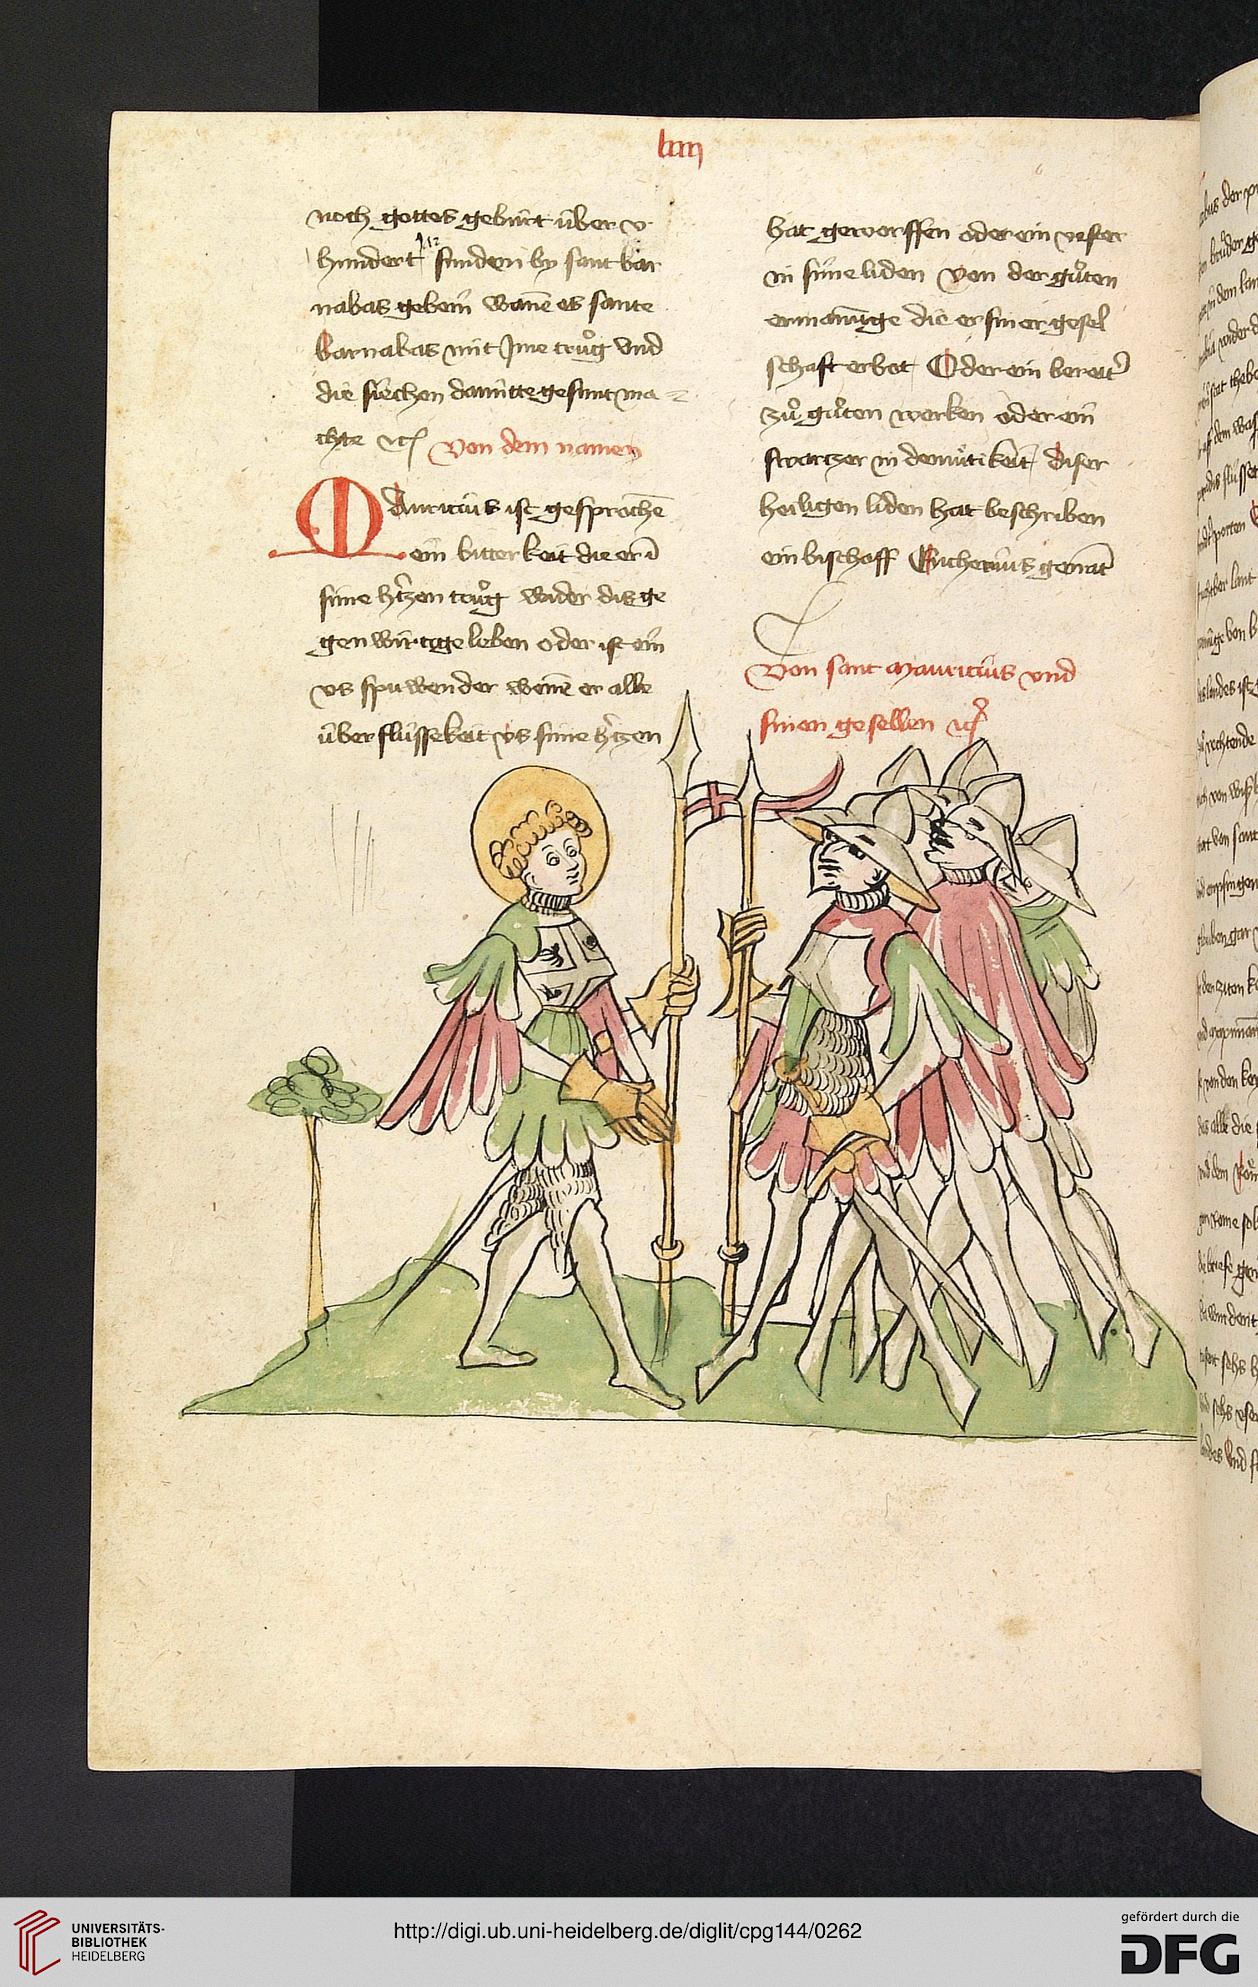 lxiiij
noch gottes gebúrt úber v
hundert Jar funden by sant bar
nabas gebein wanē es sante
Barnabas mit Jme truͦg vnd
die siechen do mitte gesunt ma=
chte ꝛcʃ von dem namen
Mauricius ist gesprochē
ein bitterkeit die er ī
sime h'tzen truͦg wider dis ge
genwirtige leben oder ist ein
vs spuwender wenē er alle
úberflússekeit vs sime h'tzen
hat geworffen oder ein vester
in sime liden von der guͦten
ermanūge die er siner gesel
schaft erbot Oder ein bereit'
zuͦ guͦten werken oder ein
swartzer in demuͤtikeit diser
heiligen liden hat beschriben
ein bischoff Eucherius genāt
Von sant mauricius vnd
sinen gesellen ꝛcʃ
UNIVERSITÄTS-
BIBLIOTHEK
HEIDELBERG
http://digi.ub.uni-heidelberg.de/diglit/cpg144/0262
gefördert durch die
DFG